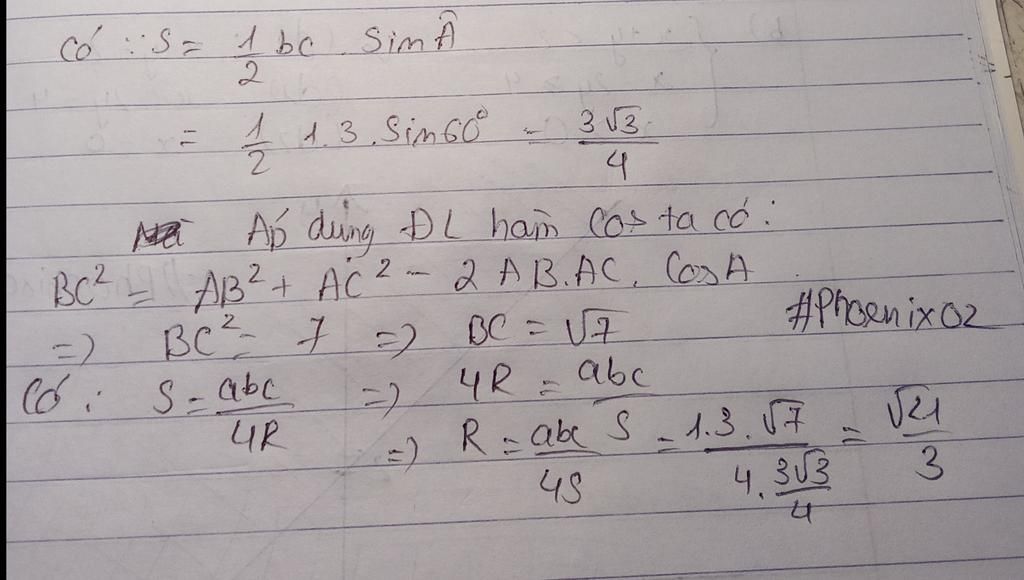 Có : S = 1/2 bc . Sin Â
= 1/2 1.3 . Sin60° = 3√3/4
Áp dụng ĐL hàm Cos ta có :
BC² = AB² + AC² - 2 AB.AC. CosA
=> BC² = 7 => BC = √7 #Phoenix02
Có : S = abc/4R => 4R = abc/S
=> R = abc/4S = 1.3.√7/(4.3√3/4) = √21/3